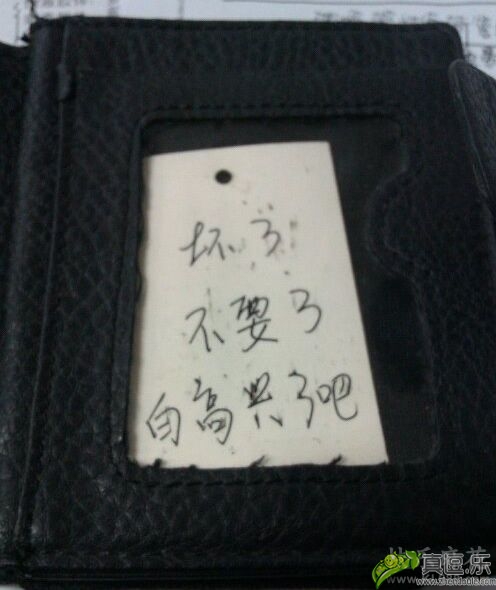 坏了
不要了
白高兴了吧
真逗.乐